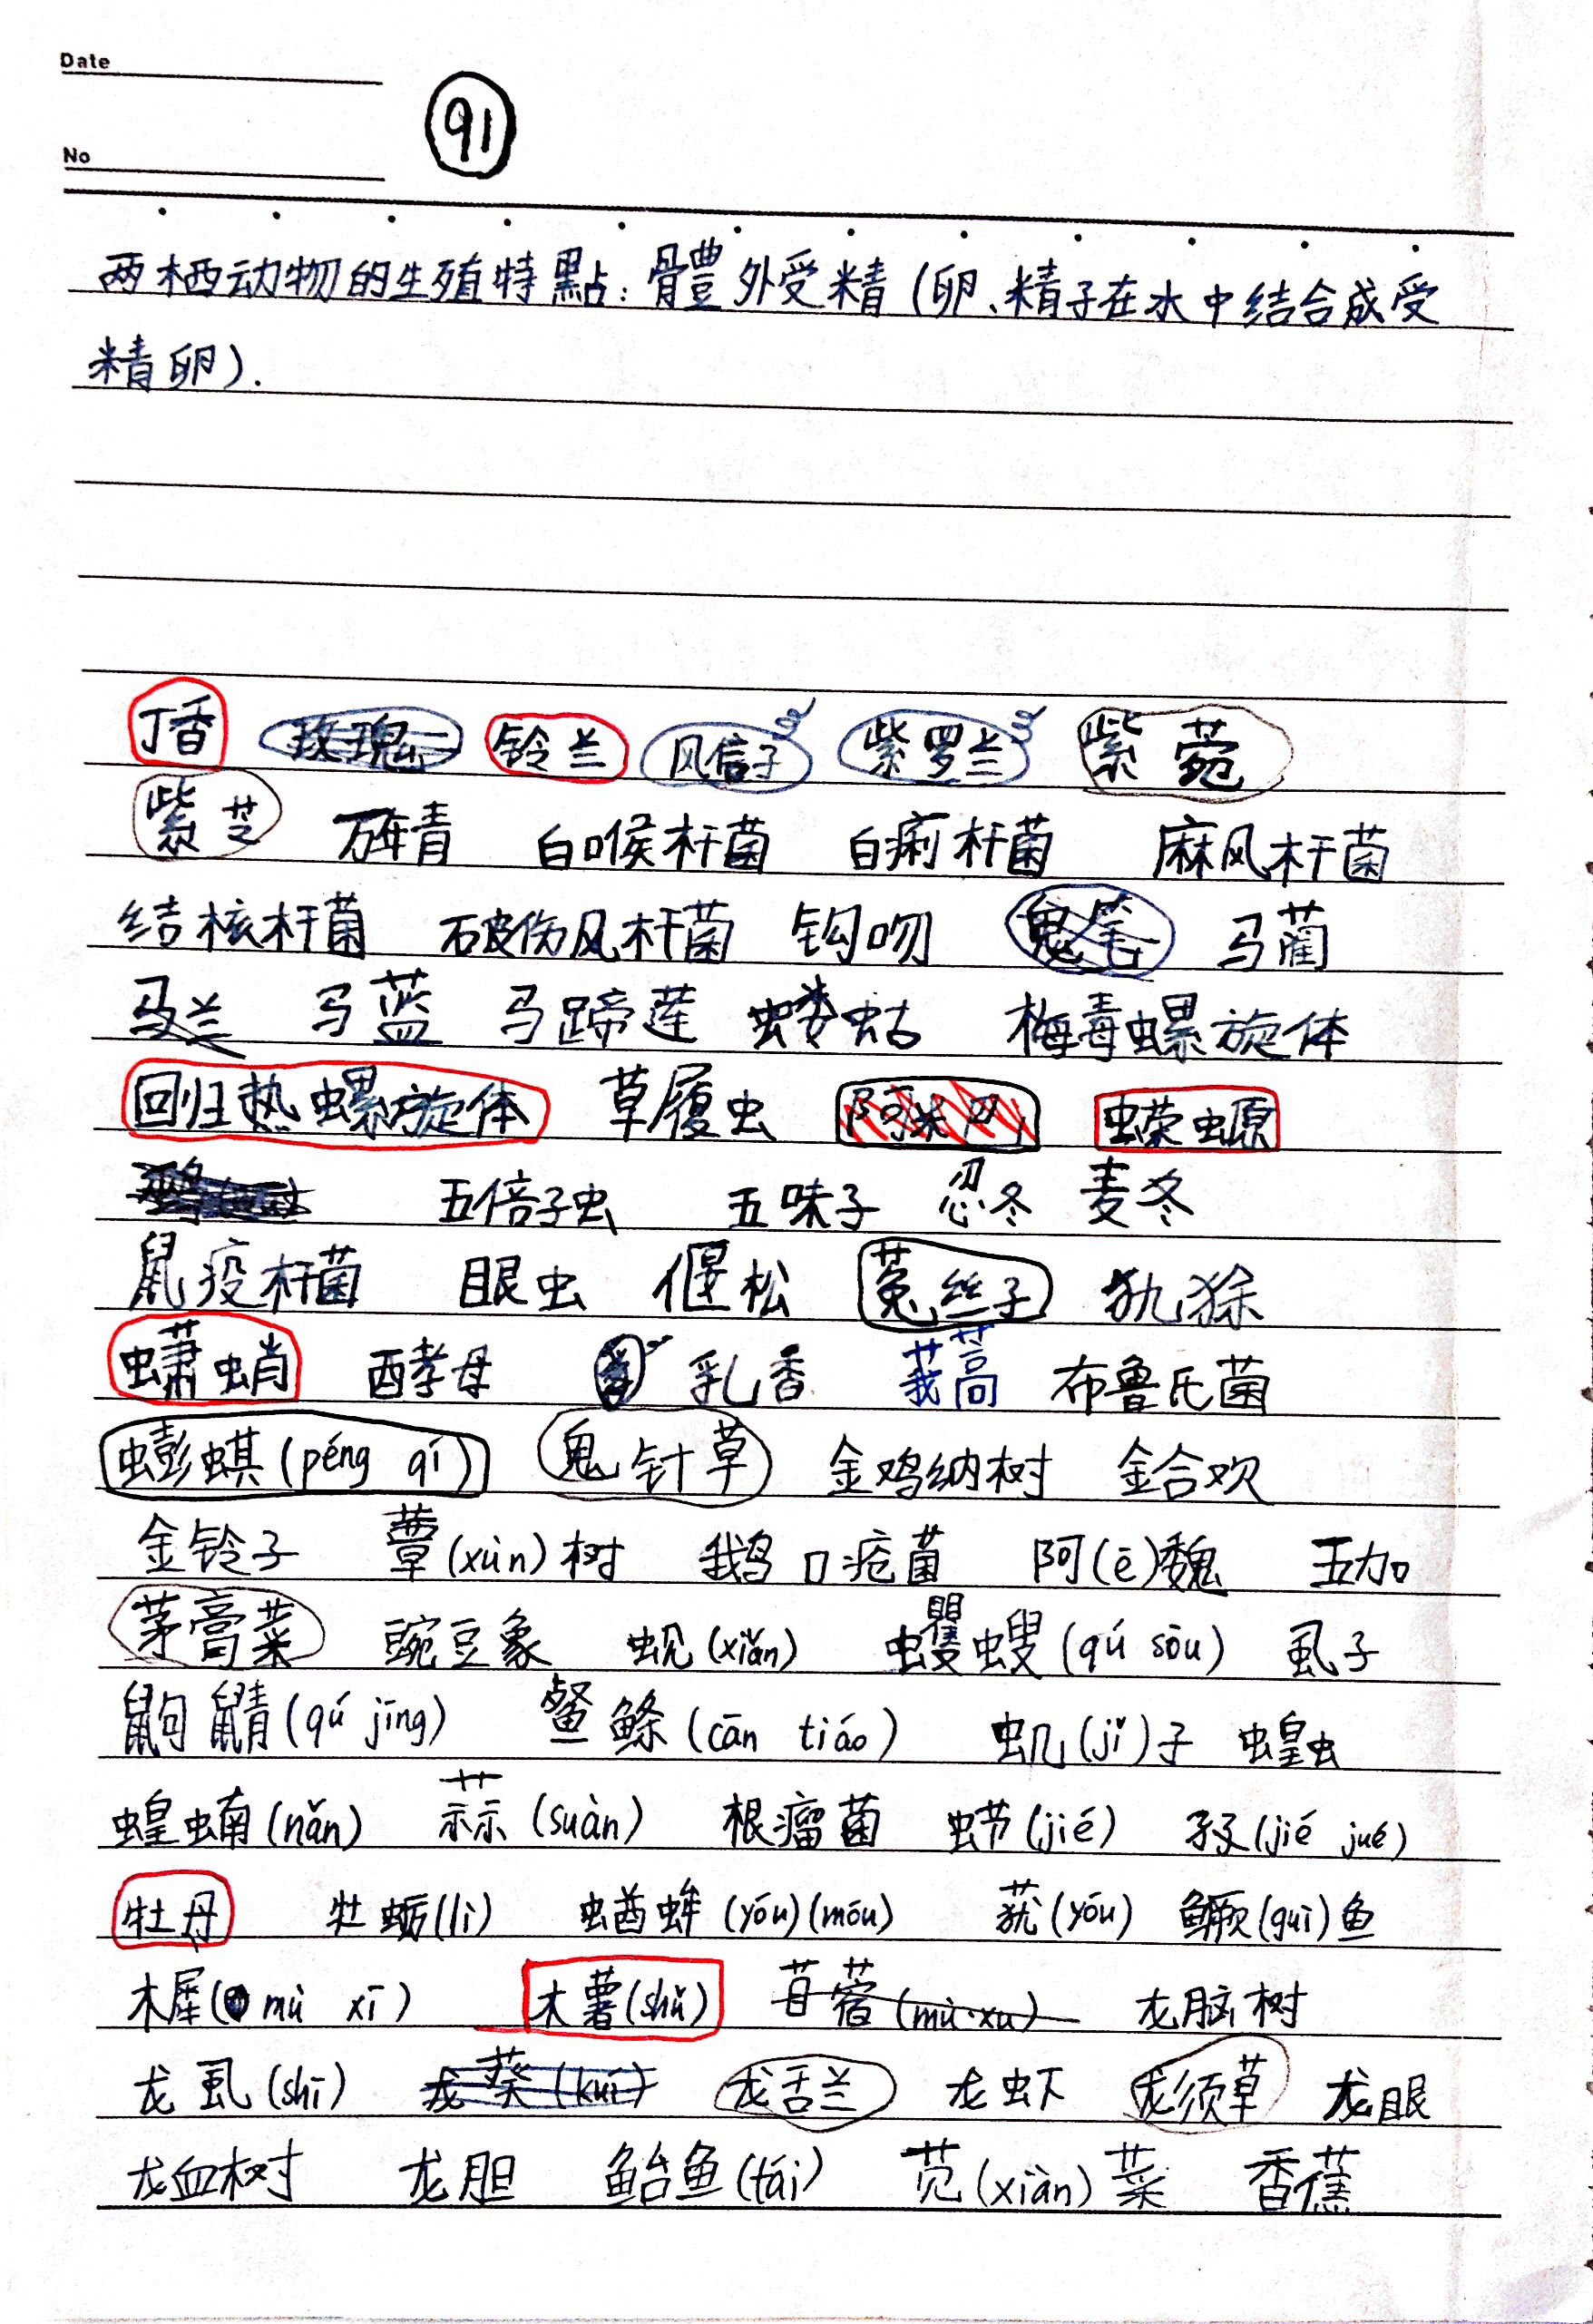 Date
91
No
两栖动物的生殖特點：骨豊外受精（卵、精子在水中结合成受
精卵）.
丁香 玫瑰 铃兰 风信子 紫罗兰 紫菀
紫芝 万年青 白喉杆菌 白痢杆菌 麻风杆菌
结核杆菌 破伤风杆菌 钩吻 鬼笔 马蔺
马兰 马蓝 马蹄莲 蝼蛄 梅毒螺旋体
回归热螺旋体 草履虫 阿米巴 蝾螈
五倍子虫 五味子 忍冬 麦冬
鼠疫杆菌 眼虫 偃松 菟丝子 犰狳
蟏蛸 酵母 乳香 莪蒿 布鲁氏菌
蟛蜞(péng qí) 鬼针草 金鸡纳树 金合欢
金铃子 蕈(xùn)树 鹅口疮菌 阿(ē)魏 五加
茅膏菜 豌豆象 蚬(xiǎn) 蠼螋(qú sōu) 虱子
鼩鼱(qú jīng) 鲎鲦(cān tiáo) 虮(jǐ)子 蝗虫
蝗蝻(nǎn) 蒜(suàn) 根瘤菌 蛣(jié) 孑孓(jié jué)
牡丹 牡蛎(lì) 蝤蛑(yóu)(móu) 莸(yóu) 鳜(guì)鱼
木犀(mù xī) 木薯(shǔ) 苜蓿(mù·xu) 龙脑树
龙虱(shī) 龙葵(kuí) 龙舌兰 龙虾 龙须草 龙眼
龙血树 龙胆 鲐鱼(tái) 苋(xiàn)菜 香蕉